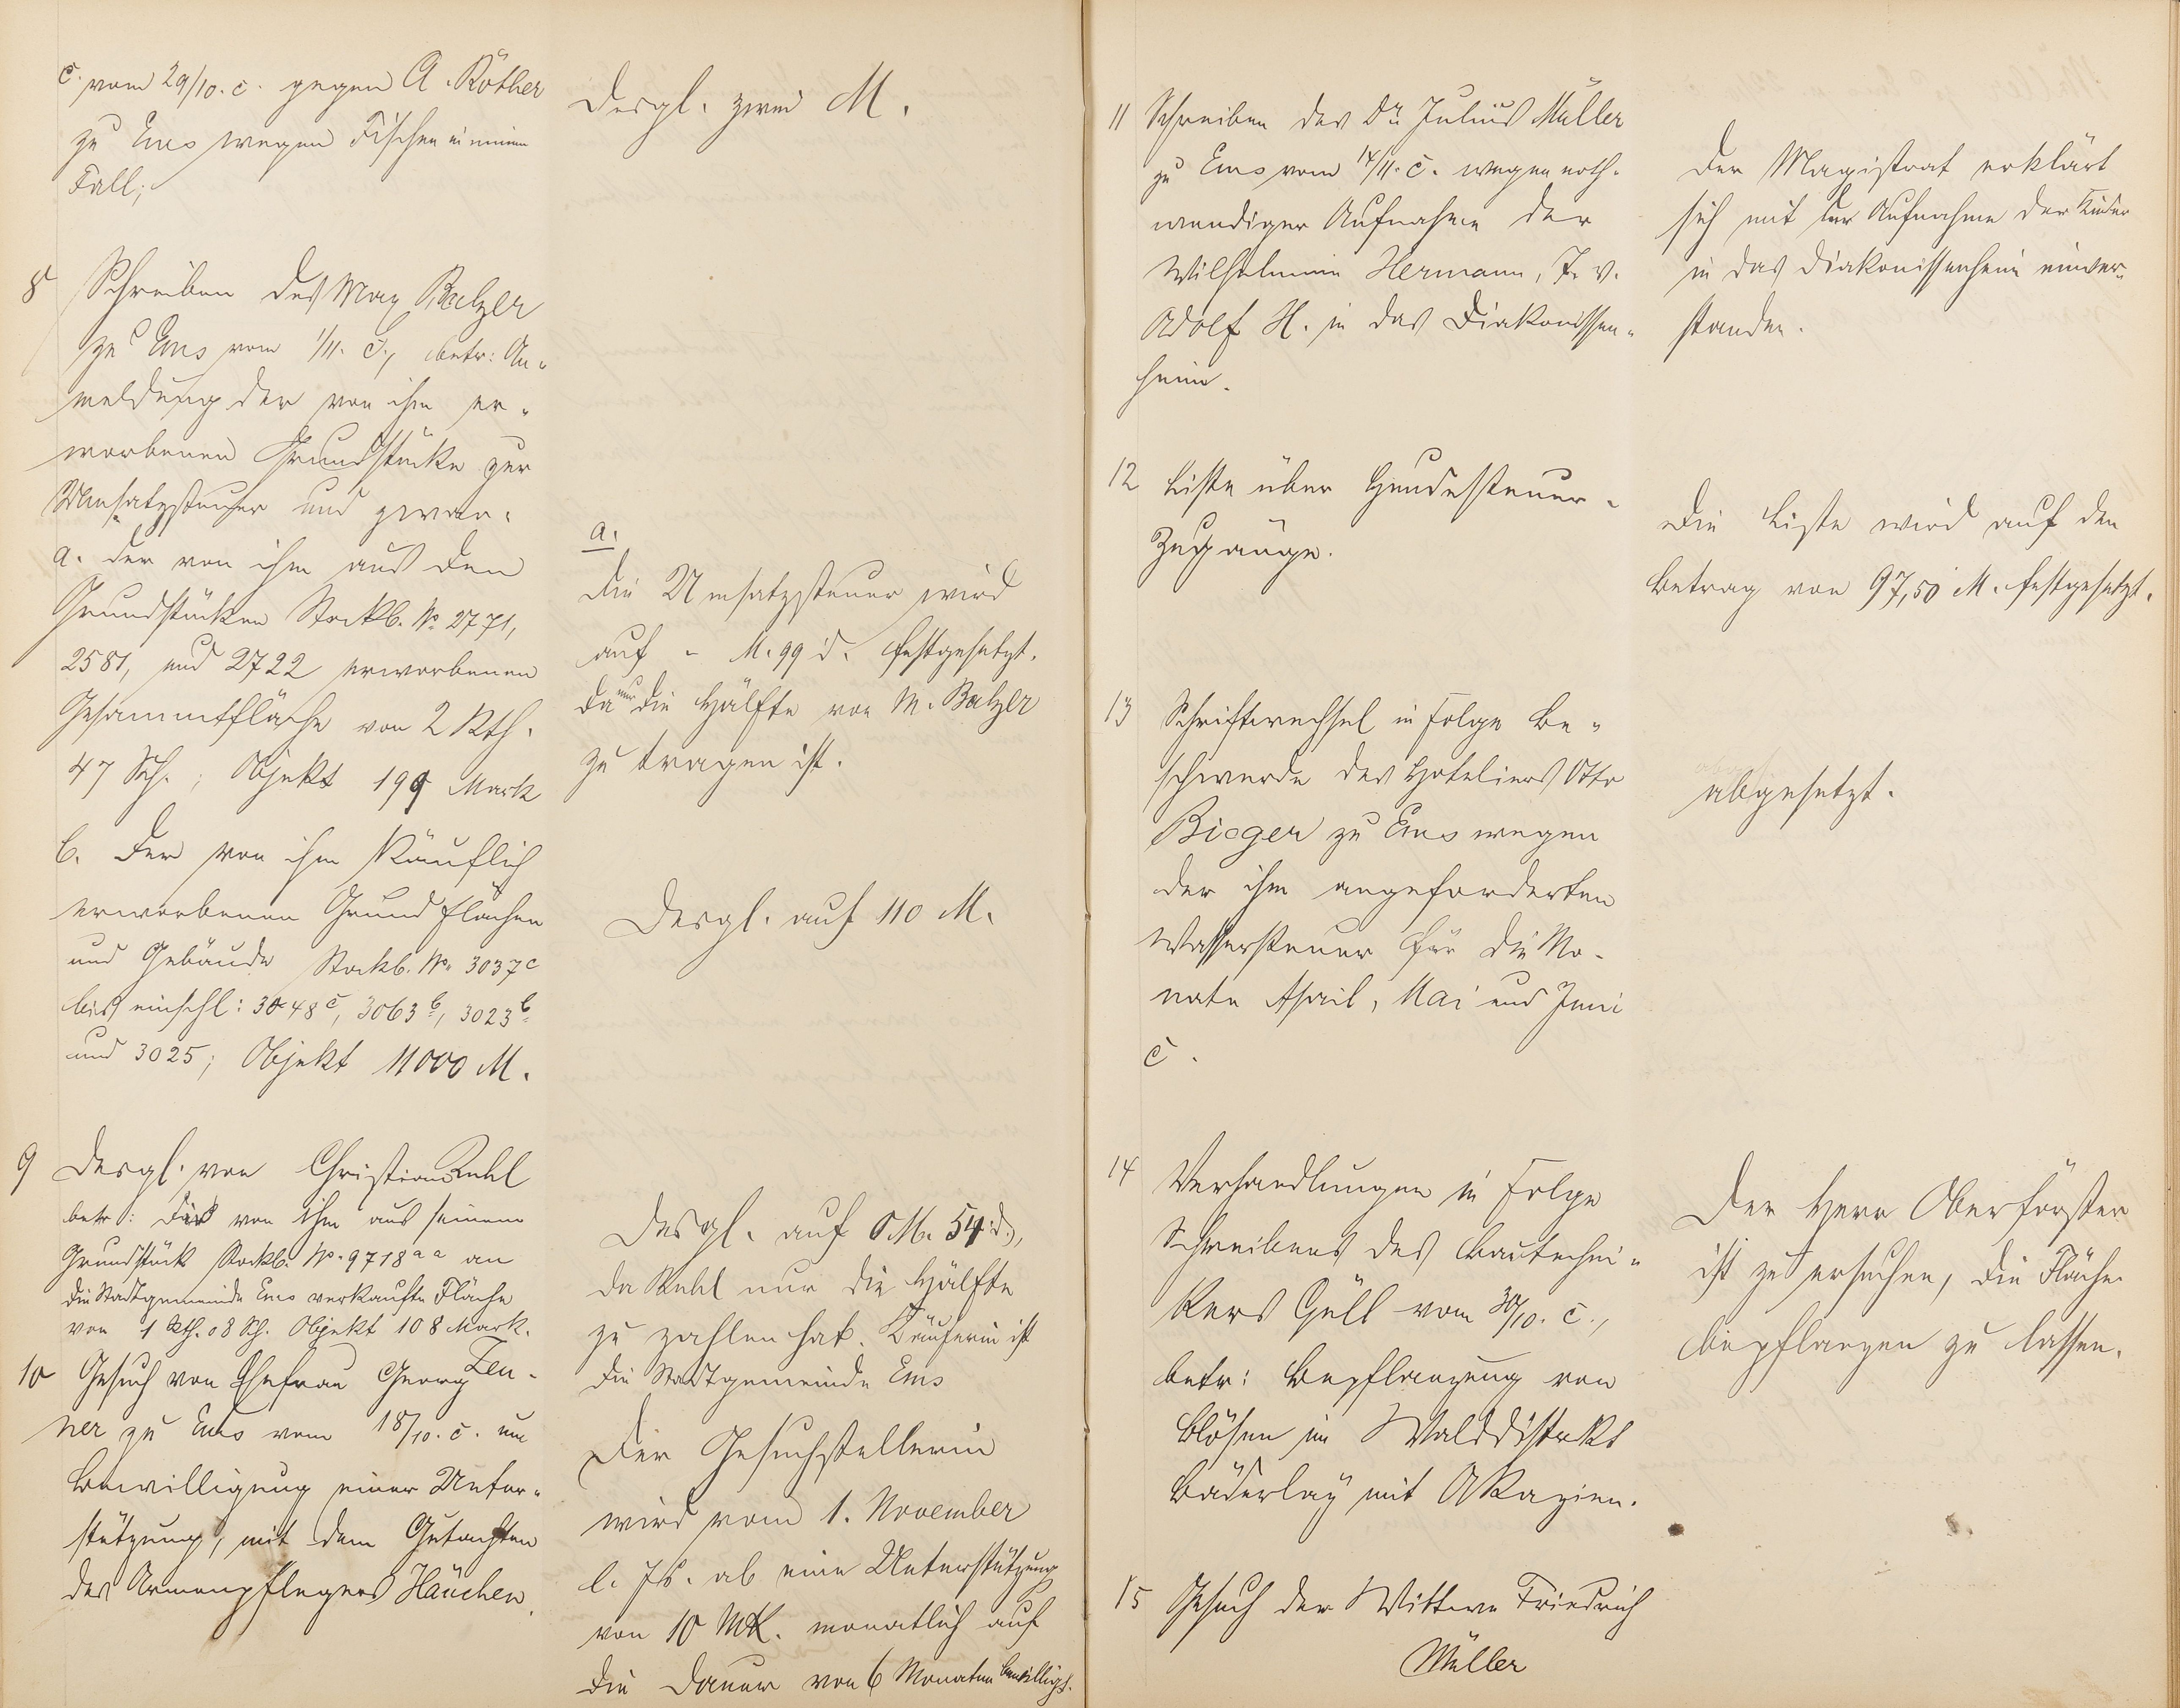 c. vom 29/10. c. gegen A. Röther
zu Ems wegen Fischen in einem
Fall;
Desgl. zwei M.
8 Schreiben des Max Balzer
zu Ems vom 1/11. c., betr: An-
meldung der von ihm er-
worbenen Grundstücke zur
Umsatzsteuer und zwar:
a. der von ihm aus den
Grundstücken Stockb. No 2771,
2581, und 2722 erworbenen
Gesammtfläche von 2 Rth.
47 Sch.; Objekt 199 Mark
a.
Die Umsatzsteuer wird
auf - M. 99 d. festgesetzt.
da nur die Hälfte von M. Balzer
zu tragen ist.
b. Der von ihm käuflich
erworbenen Grundflächen
und Gebäude Stockb. No. 3037c
bis einschl: 3048c, 3063b, 3023b
und 3025; Objekt 11000 M.
Desgl. auf 110 M.
9 Desgl. von Christian
betr: Die von ihm aus seinem
Grundstück Stockb. No. 9718aa an
die Stadtgemeinde Ems verkaufte Fläche
von 1 Rth. 08 Sch. Objekt 108 Mark.
Desgl. auf 0 M. 54 d.,
da nur die Hälfte
zu zahlen hat. Käuferin ist
die Stadtgemeinde Ems
10 Gesuch von Ehefrau Georg Zen-
ner zu Ems vom 18/10. c. um
Bewilligung einer Unter-
stützung, mit dem Gutachten
des Armenpflegers Häuchen.
Der Gesuchstellerin
wird vom 1. November
l. Js. ab eine Unterstützung
von 10 Mk. monatlich auf
die Dauer von 6 Monaten bewilligt.
11 Schreiben des Dr. Julius Müller
zu Ems vom 14/11. c. wegen noth-
wendiger Aufnahme der
Wilhelmine Hermann, T. v.
Adolf H. in das Diakonissen-
heim.
Der Magistrat erklärt
sich mit der Aufnahme der Kinder
in das Diakonissenheim einver-
standen.
12 Liste über Hundesteuer-
Zugänge.
Die Liste wird auf den
Betrag von 97,50 M. festgesetzt.
13 Schriftwechsel in Folge Be-
schwerde des Hoteliers Otto
Bieger zu Ems wegen
der ihm angeforderten
Wassersteuer für die Mo-
nate April, Mai und Juni
c.
abgesetzt.
14 Verhandlungen in Folge
Schreibens des Bautechni-
kers Güll vom 30/10. c.,
betr: Bepflanzung von
Blösen im Walddistrikt
Bäderlay mit Akazien.
Der Herr Oberförster
ist zu ersuchen, die Fläche
bepflanzen zu lassen.
15 Gesuch der Wittwe Friedrich
Müller